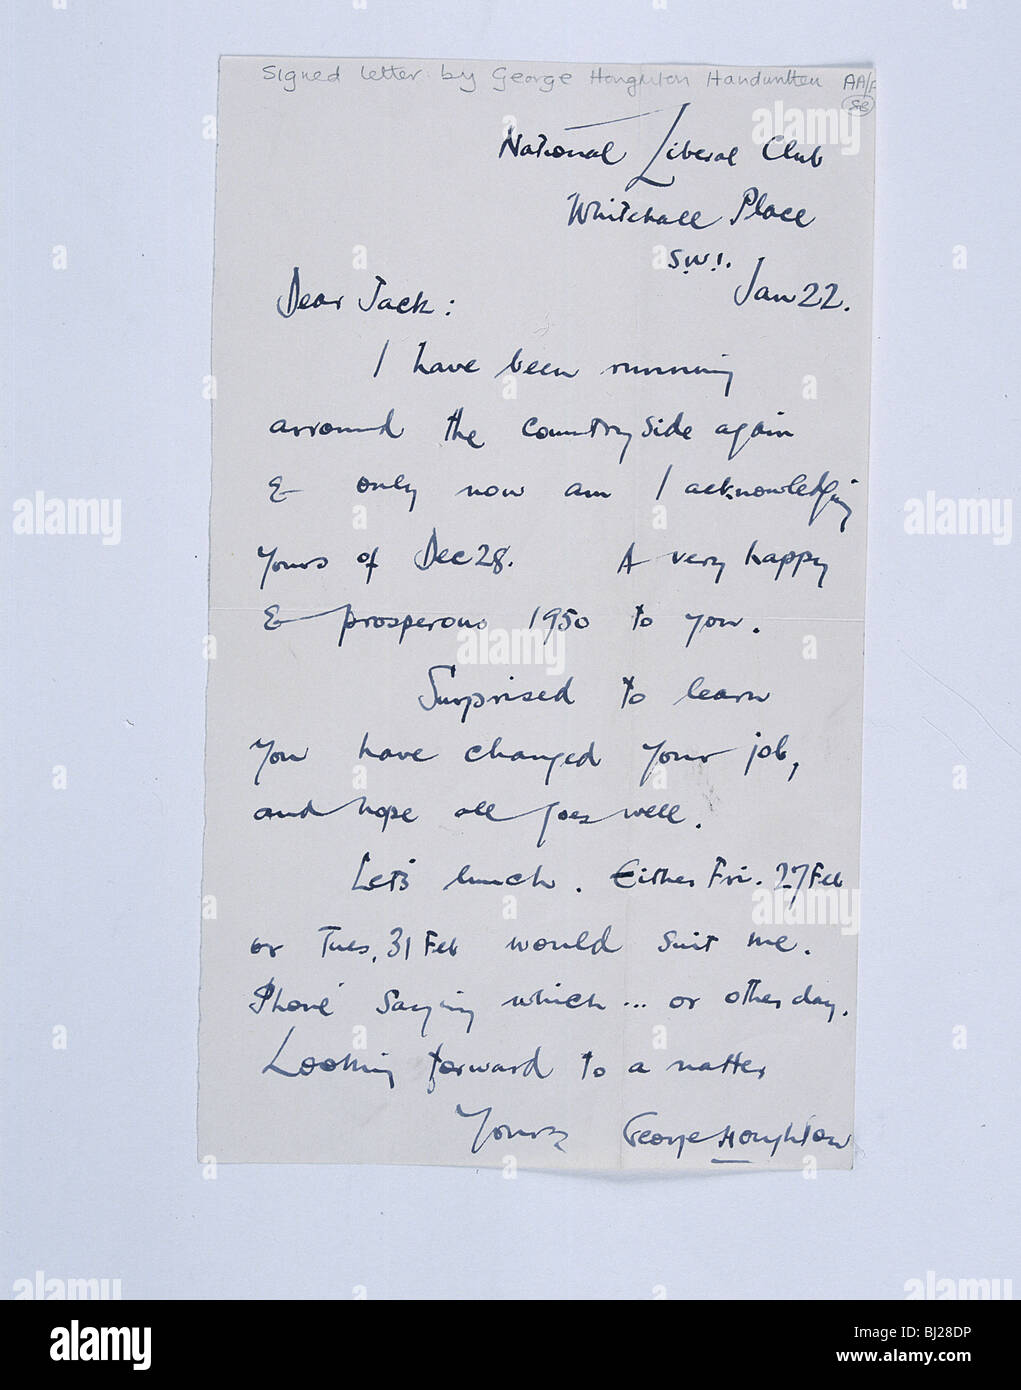 Signed letter by George Houghton Handwritten AA/A
SB
National Liberal Club
Whitehall Place
S.W.1.
Jan 22.
Dear Jack:
I have been running
arround the countryside again
& only now am I acknowledging
yours of Dec 28. A very happy
& prosperous 1950 to you.
Surprised to learn
you have changed your job,
and hope all goes well.
Let's lunch. Either Fri. 27 Feb
or Tues, 31 Feb would suit me.
'Phone' saying which ... or other day.
Looking forward to a natter
Yours George Houghton
alamy
Image ID: BJ28DP
www.alamy.com